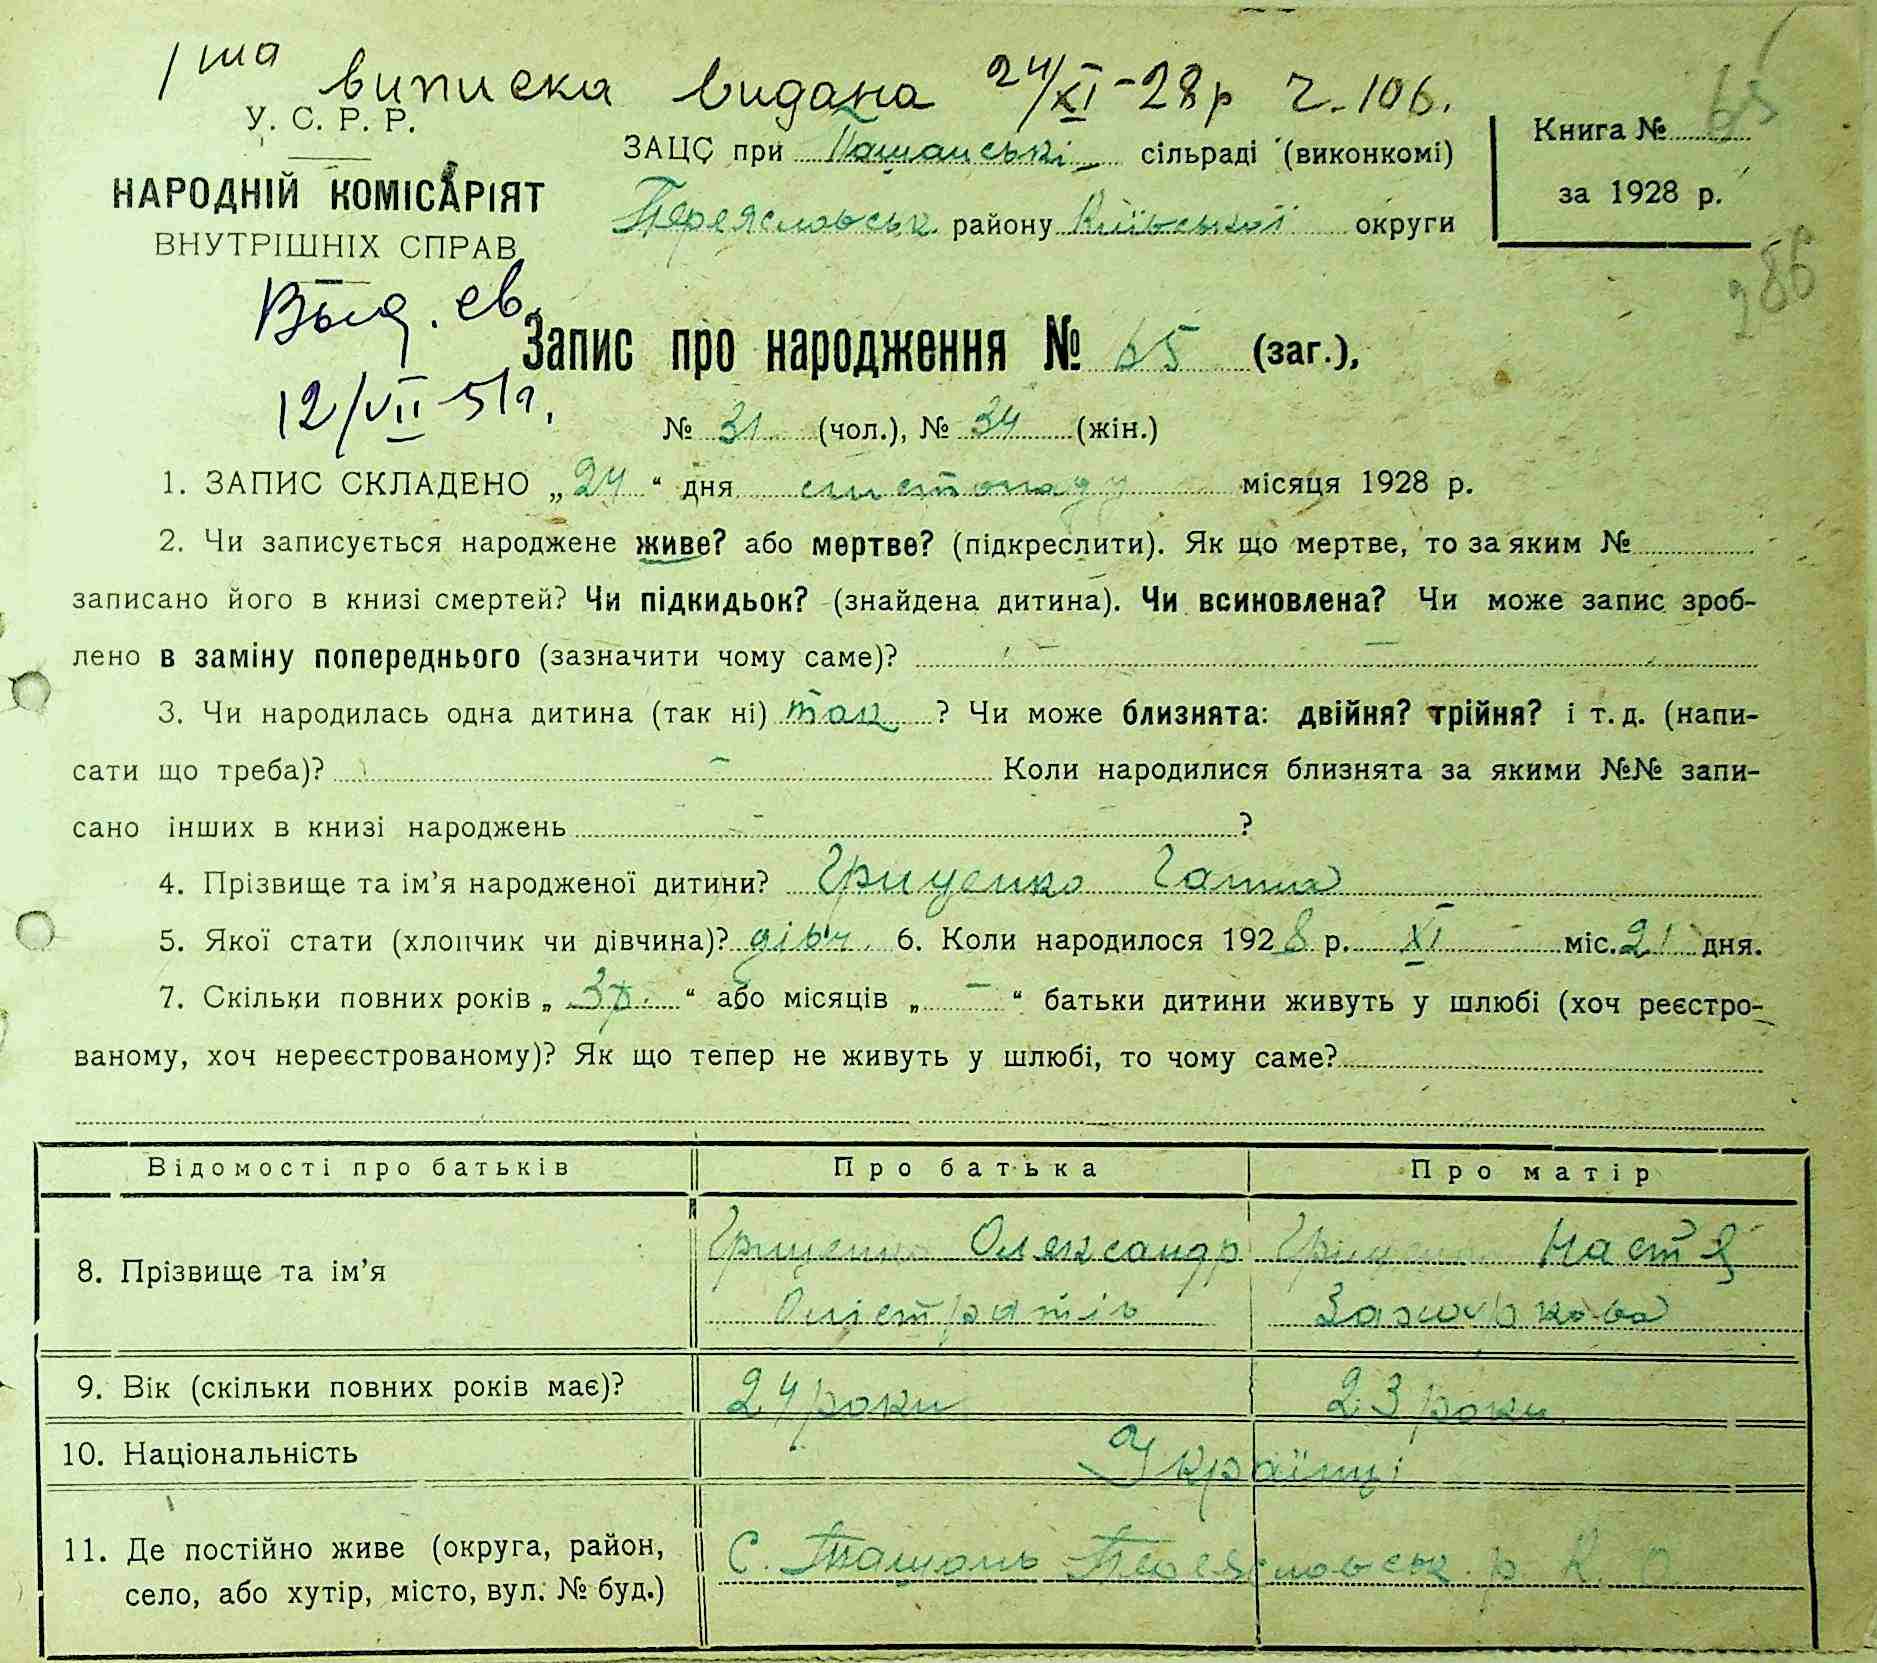 1ша виписка видана 24/XI-28р Ч. 106.
У. С. Р. Р.
НАРОДНІЙ КОМІСАРІЯТ
ВНУТРІШНІХ СПРАВ
ЗАЦС при Ташанській сільраді (виконкомі)
Переясловськ району Київської округи
Книга № 65
за 1928 р.
286
Выд. св.
12/VII-51г.
Запис про народження № 65 (заг.),
№ 31 (чол.), № 34 (жін.)
1. ЗАПИС СКЛАДЕНО „24“ дня листопаду місяця 1928 р.
2. Чи записується народжене живе? або мертве? (підкреслити). Як що мертве, то за яким №
записано його в книзі смертей? Чи підкидьок? (знайдена дитина). Чи всиновлена? Чи може запис зроб-
лено в заміну попереднього (зазначити чому саме)? –
3. Чи народилась одна дитина (так ні) так ? Чи може близнята: двійня? трійня? і т. д. (напи-
сати що треба)? – Коли народилися близнята за якими №№ запи-
сано інших в книзі народжень – ?
4. Прізвище та ім’я народженої дитини? Гриценко Ганна
5. Якої стати (хлопчик чи дівчина)? дівч. 6. Коли народилося 1928 р. XI міс. 21 дня.
7. Скільки повних років „ 3р. “ або місяців „ – “ батьки дитини живуть у шлюбі (хоч реєстро-
ваному, хоч нереєстрованому)? Як що тепер не живуть у шлюбі, то чому саме?
Відомості про батьків Про батька Про матір
8. Прізвище та ім’я Гриценко Олександр Гриценко Настя
9. Вік (скільки повних років має)? 24 роки 23 роки
10. Національність Українці
11. Де постійно живе (округа, район, С. Ташань Переясловськ. р. К. О
село, або хутір, місто, вул. № буд.)